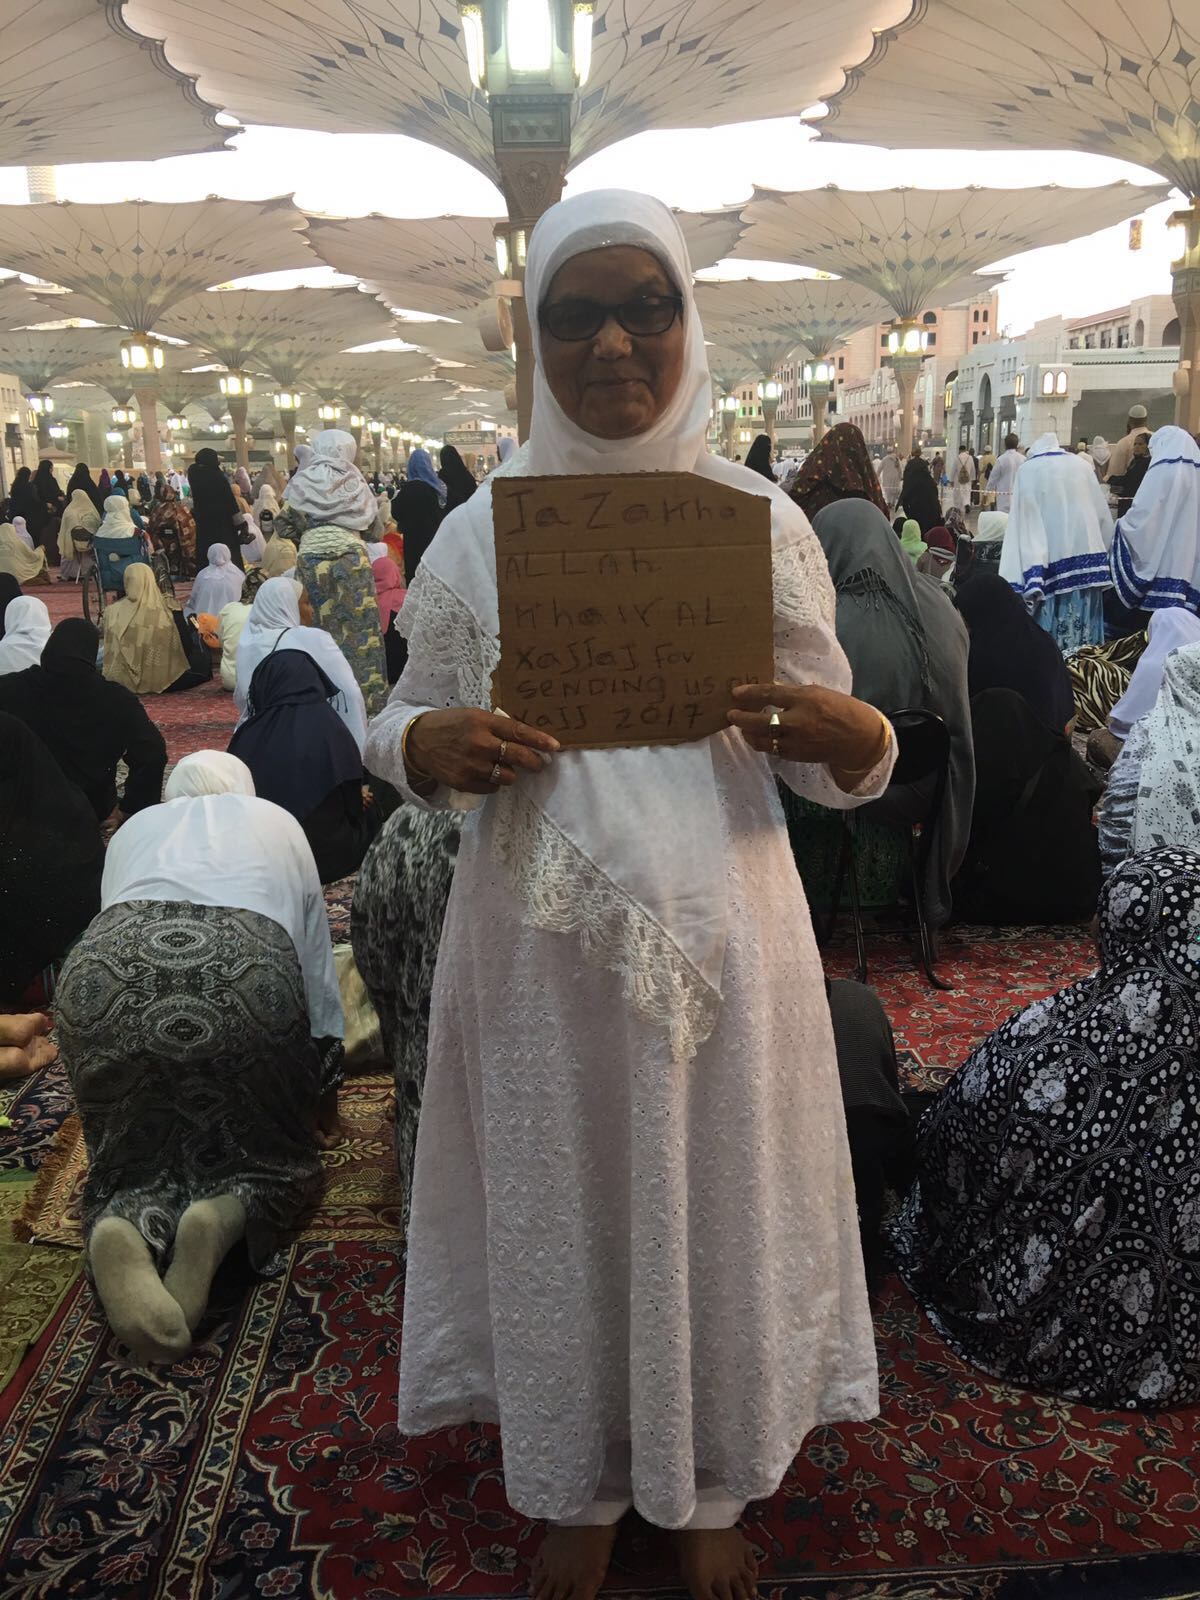 JaZakha
ALLAh
Khair AL
XaJJaJ For
SENDING us on
XaJJ 2017